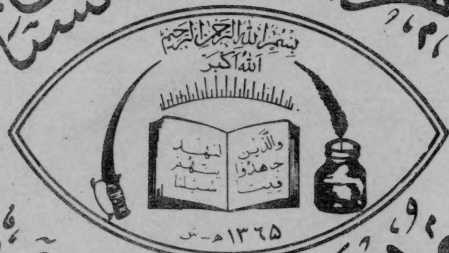 بسم الله الرحمن الرحيم
الله اكبر
والذين
جهدوا
فينا
لنهد
ينهم
سبلنا
١٣٦٥ ه‍-ش